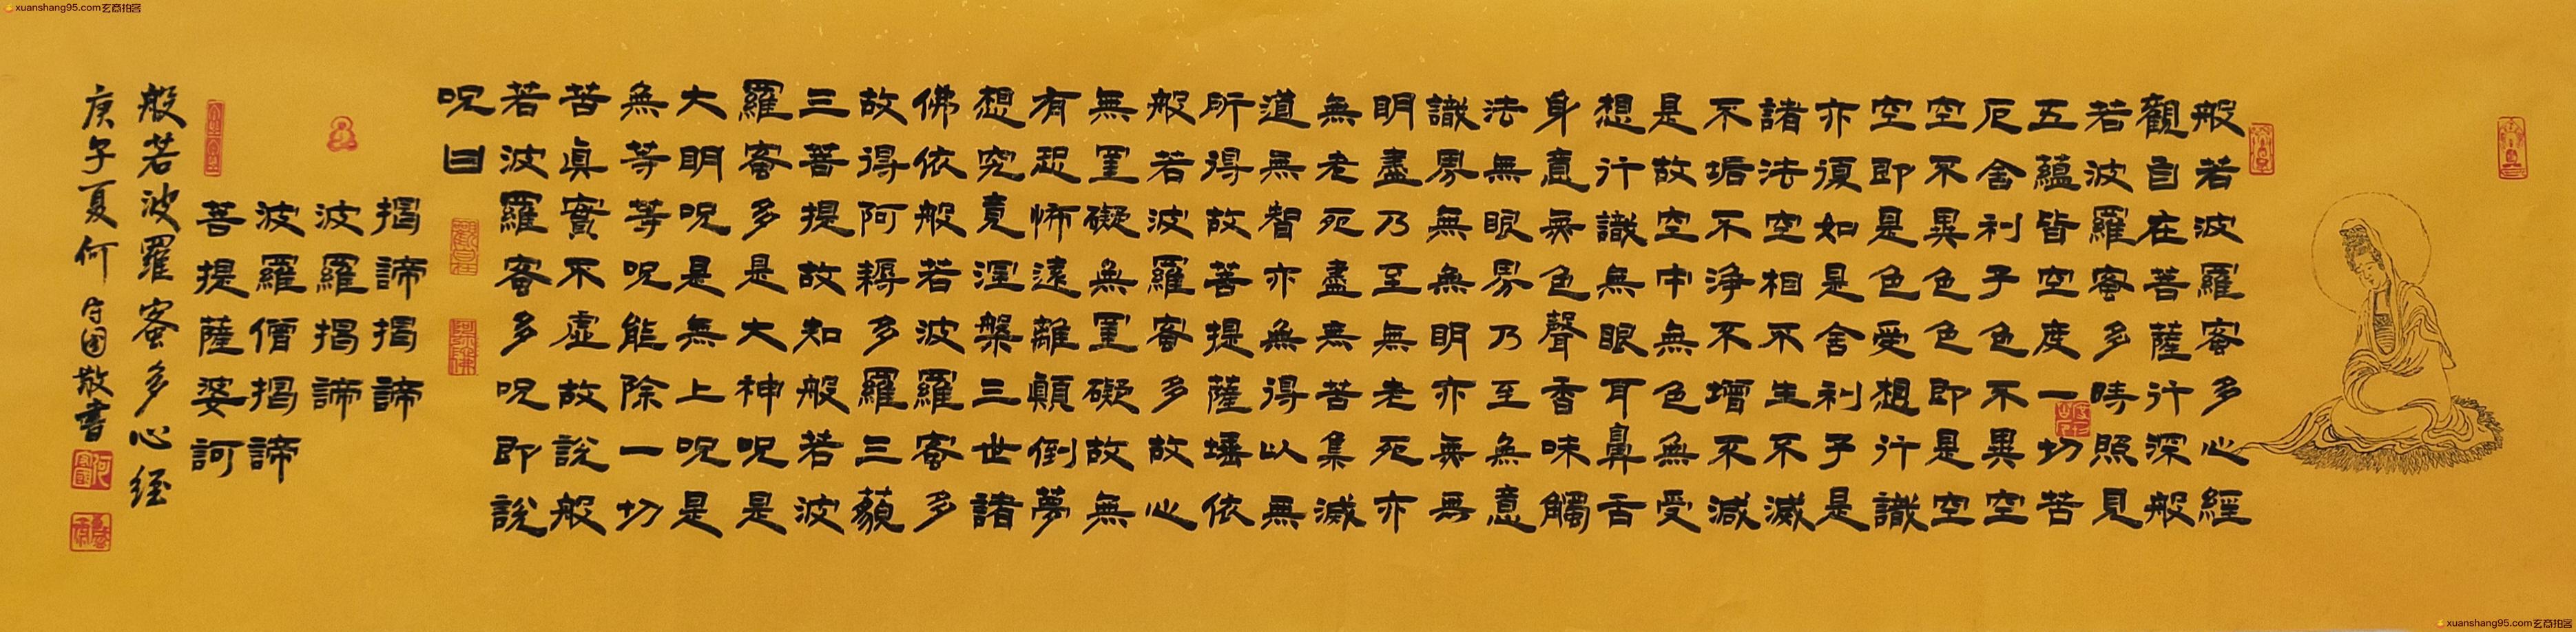 般若波羅蜜多心經
觀自在菩薩行深般
若波羅蜜多時照見
五蘊皆空度一切苦
厄舍利子色不異空
空不異色色即是空
空即是色受想行識
亦復如是舍利子是
諸法空相不生不滅
不垢不淨不增不減
是故空中無色無受
想行識無眼耳鼻舌
身意無色聲香味觸
法無眼界乃至無意
識界無無明亦無無
明盡乃至無老死亦
無老死盡無苦集滅
道無智亦無得以無
所得故菩提薩埵依
般若波羅蜜多故心
無罣礙無罣礙故無
有恐怖遠離顛倒夢
想究竟涅槃三世諸
佛依般若波羅蜜多
故得阿耨多羅三藐
三菩提故知般若波
羅蜜多是大神呪是
大明呪是無上呪是
無等等呪能除一切
苦眞實不虛故說般
若波羅蜜多呪即說
呪曰
揭諦揭諦
波羅揭諦
波羅僧揭諦
菩提薩婆訶
般若波羅蜜多心經
庚子夏何守國敬書
xuanshang95.com玄商拍客
xuanshang95.com玄商拍客